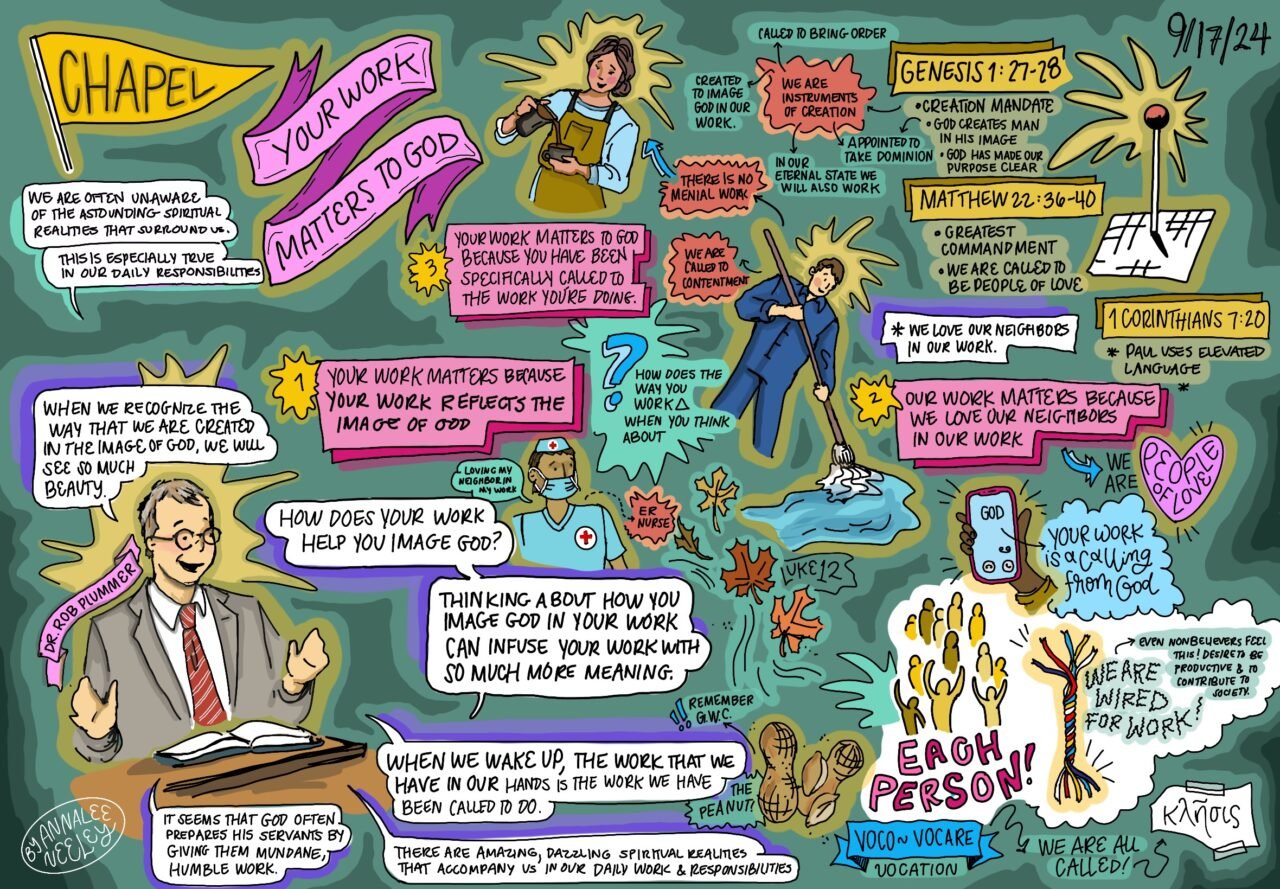 CHAPEL
YOUR WORK
MATTERS TO GOD
9/17/24
WE ARE OFTEN UNAWARE
OF THE ASTOUNDING SPIRITUAL
REALITIES THAT SURROUND US.
THIS IS ESPECIALLY TRUE
IN OUR DAILY RESPONSIBILITIES
CALLED TO BRING ORDER
CREATED
TO IMAGE
GOD IN OUR
WORK.
WE ARE
INSTRUMENTS
OF CREATION
APPOINTED TO
TAKE DOMINION
IN OUR
ETERNAL STATE WE
WILL ALSO WORK
GENESIS 1:27-28
• CREATION MANDATE
• GOD CREATES MAN
IN HIS IMAGE
• GOD HAS MADE OUR
PURPOSE CLEAR
MATTHEW 22:36-40
• GREATEST
COMMANDMENT
• WE ARE CALLED TO
BE PEOPLE OF LOVE
THERE IS NO
MENIAL WORK
WE ARE
CALLED TO
CONTENTMENT
3
YOUR WORK MATTERS TO GOD
BECAUSE YOU HAVE BEEN
SPECIFICALLY CALLED TO
THE WORK YOU'RE DOING.
* WE LOVE OUR NEIGHBORS
IN OUR WORK.
1 CORINTHIANS 7:20
* PAUL USES ELEVATED
LANGUAGE
*
1
YOUR WORK MATTERS BECAUSE
YOUR WORK REFLECTS THE
IMAGE OF GOD
?
HOW DOES THE
WAY YOU
WORK Δ
WHEN YOU THINK
ABOUT
2
OUR WORK MATTERS BECAUSE
WE LOVE OUR NEIGHBORS
IN OUR WORK
WE
ARE
PEOPLE
OF LOVE
WHEN WE RECOGNIZE THE
WAY THAT WE ARE CREATED
IN THE IMAGE OF GOD, WE WILL
SEE SO MUCH
BEAUTY.
DR. ROB PLUMMER
LOVING MY
NEIGHBOR IN
MY WORK
ER
NURSE
HOW DOES YOUR WORK
HELP YOU IMAGE GOD?
THINKING ABOUT HOW YOU
IMAGE GOD IN YOUR WORK
CAN INFUSE YOUR WORK WITH
SO MUCH MORE MEANING.
LUKE 12
GOD
YOUR WORK
is a calling
from God
EACH
PERSON!
EVEN NONBELIEVERS FEEL
THIS! DESIRE TO BE
PRODUCTIVE & TO
CONTRIBUTE TO
SOCIETY.
WE ARE
WIRED
FOR WORK!
!! REMEMBER
G.W.C.
THE
PEANUT!
WHEN WE WAKE UP, THE WORK THAT WE
HAVE IN OUR HANDS IS THE WORK WE HAVE
BEEN CALLED TO DO.
IT SEEMS THAT GOD OFTEN
PREPARES HIS SERVANTS BY
GIVING THEM MUNDANE,
HUMBLE WORK.
THERE ARE AMAZING, DAZZLING SPIRITUAL REALITIES
THAT ACCOMPANY US IN OUR DAILY WORK & RESPONSIBILITIES
VOCO ~ VOCARE
VOCATION
WE ARE ALL
CALLED!
κλῆσις
BY ANNALEE
NEELEY